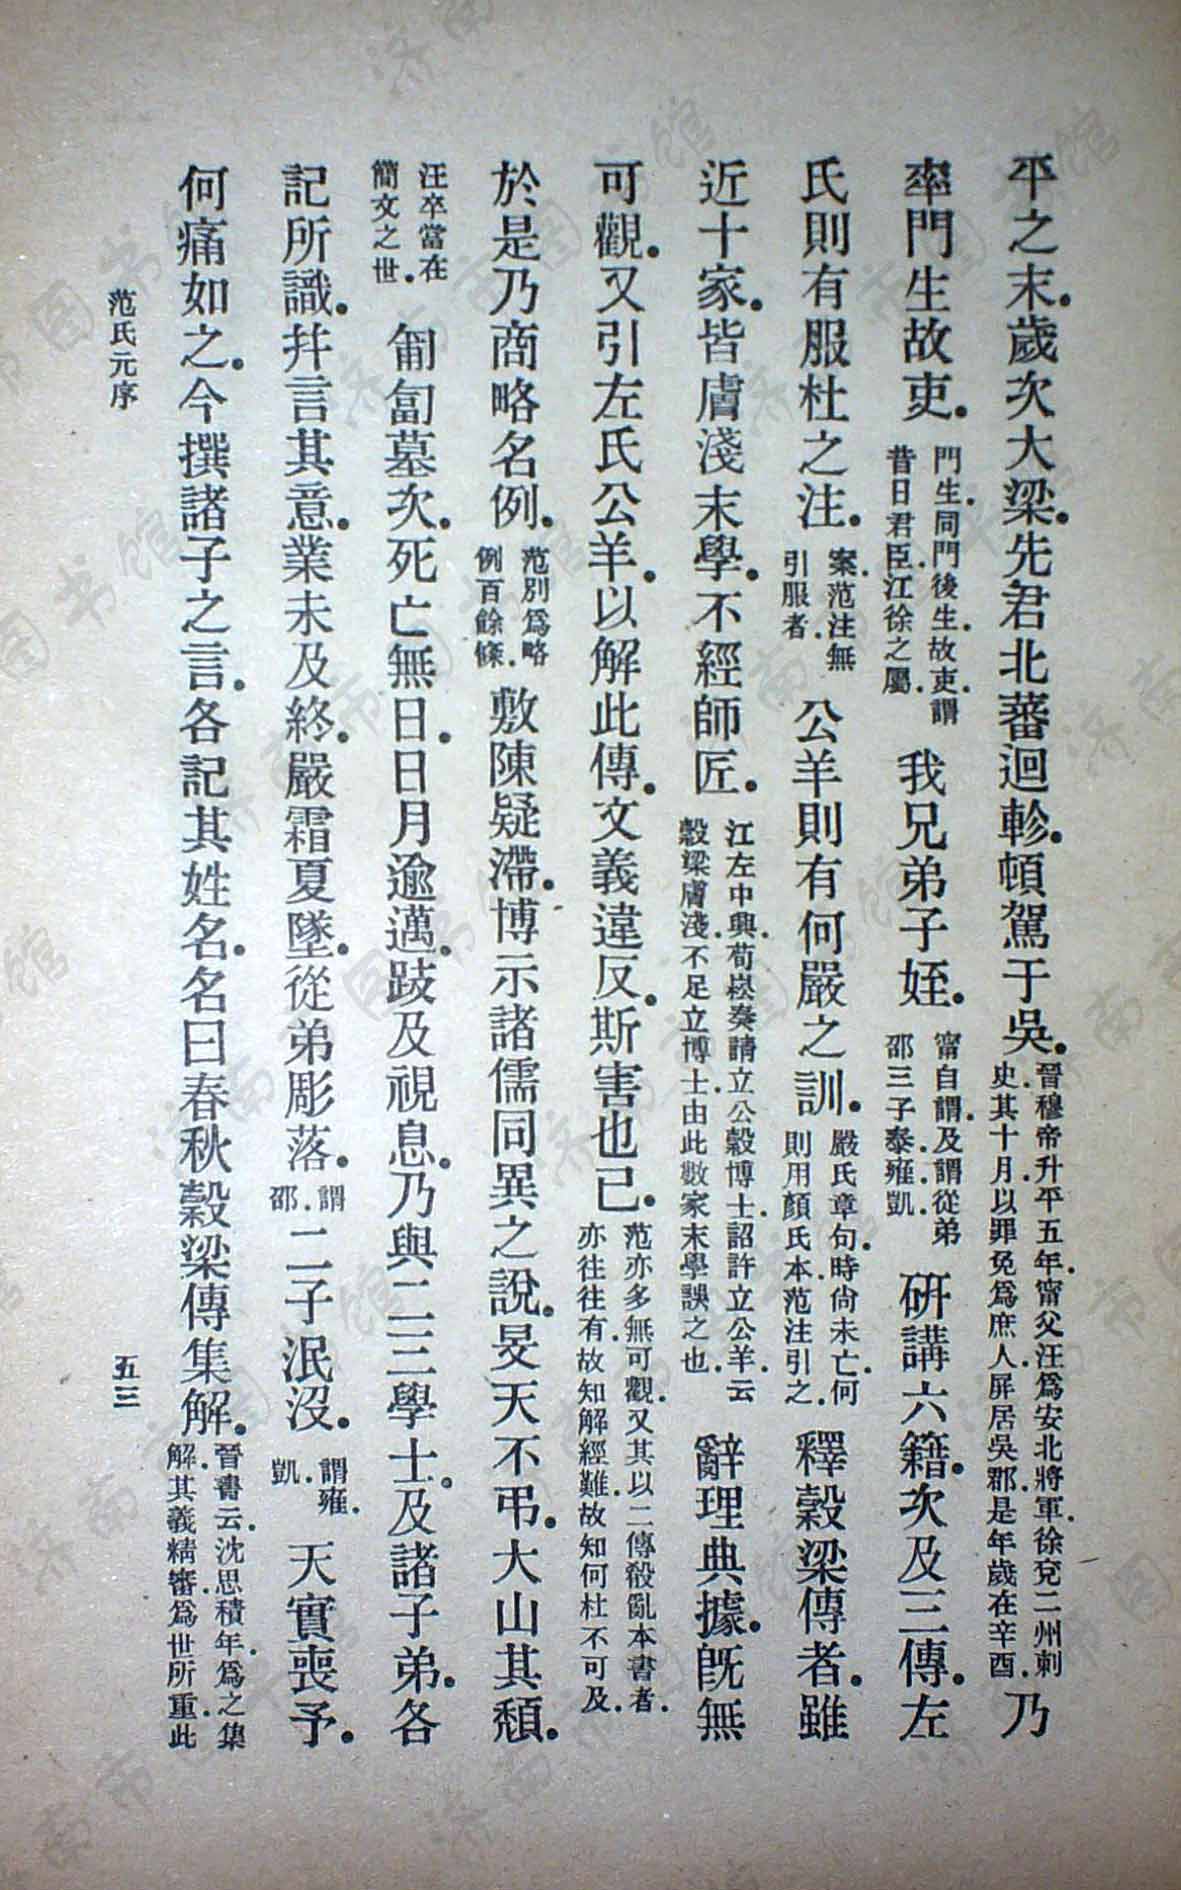 平之末。歲次大梁。先君北蕃迴軫。頓駕于吳。晉穆帝升平五年。甯父汪爲安北將軍。徐兗二州刺史。其十月。以罪免爲庶人。屛居吳郡。是年歲在辛酉。乃
率門生故吏。門生。同門後生。故吏。謂昔日君臣。江徐之屬。我兄弟子姪。甯自謂。及謂從弟邵。三子泰。雍。凱。硏講六籍。次及三傳。左
氏則有服杜之注。案。范注無引服者。公羊則有何嚴之訓。嚴氏章句。時尙未亡。何則用顏氏本。范注引之。釋穀梁傳者。雖
近十家。皆膚淺末學。不經師匠。江左中興。荀崧奏請立公穀博士。詔許立公羊。云穀梁膚淺。不足立博士。由此數家末學誤之也。辭理典據。旣無
可觀。又引左氏公羊。以解此傳。文義違反。斯害也已。范亦多無可觀。又其以二傳殽亂本書者。亦往往有。故知解經難。故知何杜不可及。
於是乃商略名例。范別爲略例百餘條。敷陳疑滯。博示諸儒同異之說。旻天不弔。大山其頹。
汪卒當在簡文之世。匍匐墓次。死亡無日。日月逾邁。跂及視息。乃與二三學士。及諸子弟。各
記所識。幷言其意。業未及終。嚴霜夏墜。從弟彫落。謂邵。二子泯沒。謂雍。凱。天實喪予。
何痛如之。今撰諸子之言。各記其姓名。名曰春秋穀梁傳集解。晉書云。沈思積年。爲之集解。其義精審。爲世所重。此
范氏元序
五三
济南市图书馆